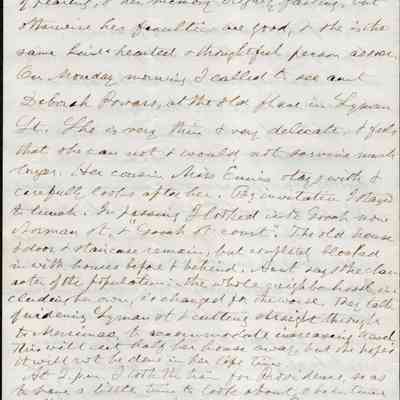 of hearing, & her memory slightly failing, but
otherwise her faculties are good, & she is the
same kind hearted & thoughtful person as ever.
On Monday morning I called to see aunt
Deborah Powars, at the old place in Lyman
St. She is very thin & very delicate, & feels
that she can not & would not survive much
longer. Her cousin, Miss Emins stays with &
carefully looks after her. By invitation I stayed
to lunch. In passing I looked into Gooch now
Norman st, & "Gooch St court". The old house
& door & staircase remain, but completely blocked
in with houses before & behind. Aunt says the char-
acter of the population in the whole neighborhood in-
cluding her own, is changed for the worse. They talk
of widening Lyman st & cutting straight through
to Merrimac, to accommodate increasing travel.
This will cut half her house away, but she hopes
it will not be done in her life time.
At 2 p.m. I took the train for Providence, so as
to have a little time to look about, & be on time